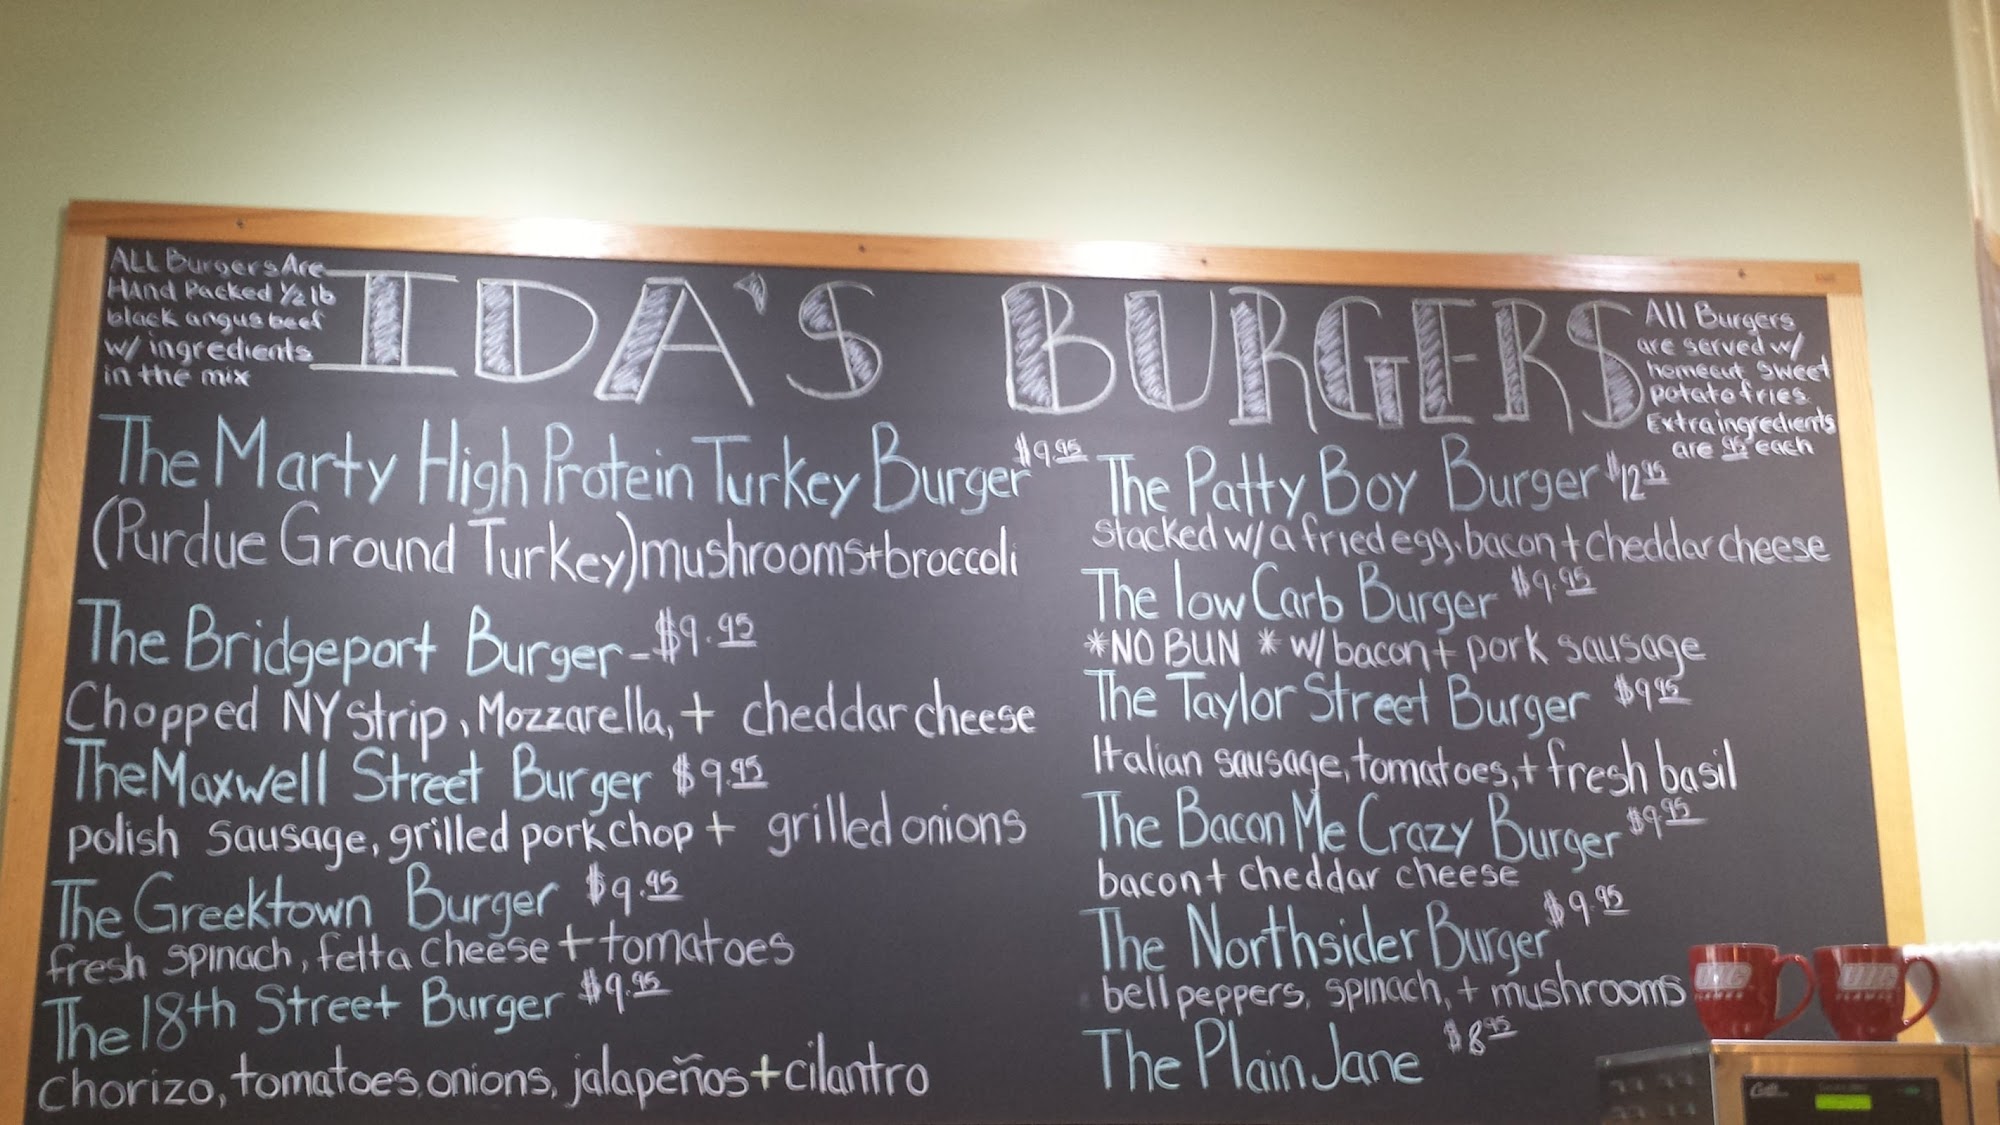 ALL Burgers Are
HAnd Packed 1/2 lb
black angus beef
w/ ingredients
in the mix
IDA'S BURGERS
All Burgers
are served w/
homecut sweet
potato fries
Extra ingredients
are .95 each
The Marty High Protein Turkey Burger $9.95
(Purdue Ground Turkey) mushrooms + broccoli
The Bridgeport Burger - $9.95
Chopped NY strip, Mozzarella, + cheddar cheese
The Maxwell Street Burger $9.95
polish sausage, grilled pork chop + grilled onions
The Greektown Burger $9.95
fresh spinach, fetta cheese + tomatoes
The 18th Street Burger $9.95
Chorizo, tomatoes, onions, jalapeños + cilantro
The Patty Boy Burger $12.95
stacked w/ a fried egg, bacon + cheddar cheese
The low Carb Burger $9.95
*NO BUN * w/ bacon + pork sausage
The Taylor Street Burger $9.95
Italian sausage, tomatoes, + fresh basil
The Bacon Me Crazy Burger $9.95
bacon + cheddar cheese
The Northsider Burger $9.95
bell peppers, spinach, + mushrooms
The Plain Jane $8.95
UIC
FLAMES
UIC
FLAMES